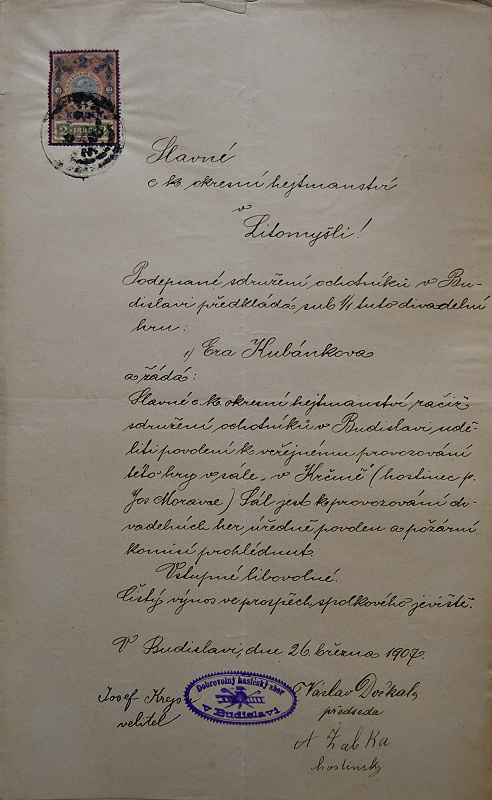 2
2 1898
Slavné
c. k. okresní hejtmanství
v
Litomyšli!
Podepsané sdružení ochotníků v Bu-
dislavi předkládá sub 1/1 tuto divadelní
hru:
1) Era Kubánkova
a žádá:
Slavné c. k. okresní hejtmanství račiž
sdružení ochotníků v Budislavi udě-
liti povolení k veřejnému provozování
této hry v sále „v Krčmě" (hostinec p.
Jos Moravce) Sál jest k provozování di-
vadelních her, úředně povolen a požární
komisí prohlédnut.
Vstupné libovolné.
Čistý výnos ve prospěch spolkového jeviště.
V Budislavi, dne 26. března 1907.
Josef Krejs
velitel
Dobrovolný hasičský sbor
v Budislavi
Václav Doskal
předseda
A Žabka
hostinský